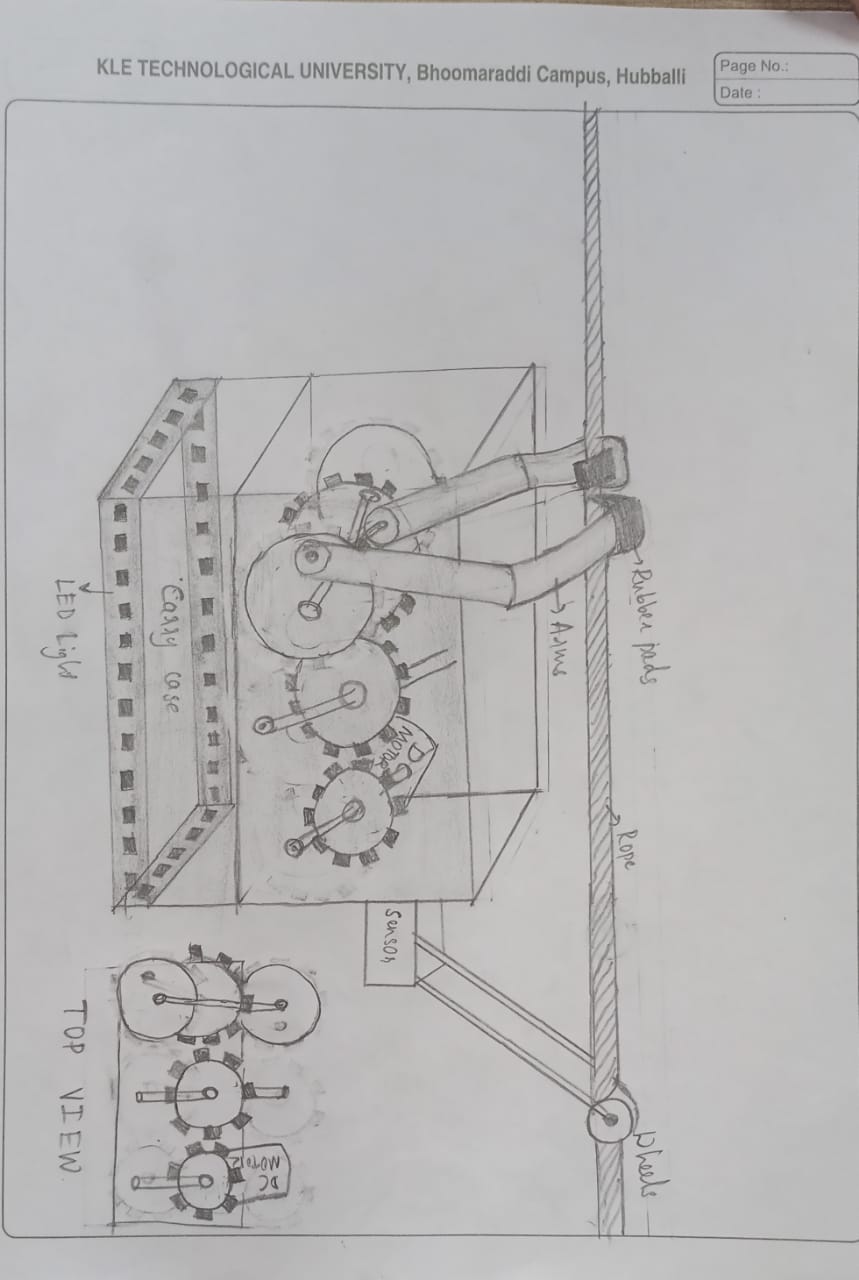 Page No.:
Date :
KLE TECHNOLOGICAL UNIVERSITY, Bhoomaraddi Campus, Hubballi
Rubber pads
Rope
Wheels
Arms
DC
MOTOR
Sensor
Carry case
LED Light
DC
MOTOR
TOP VIEW